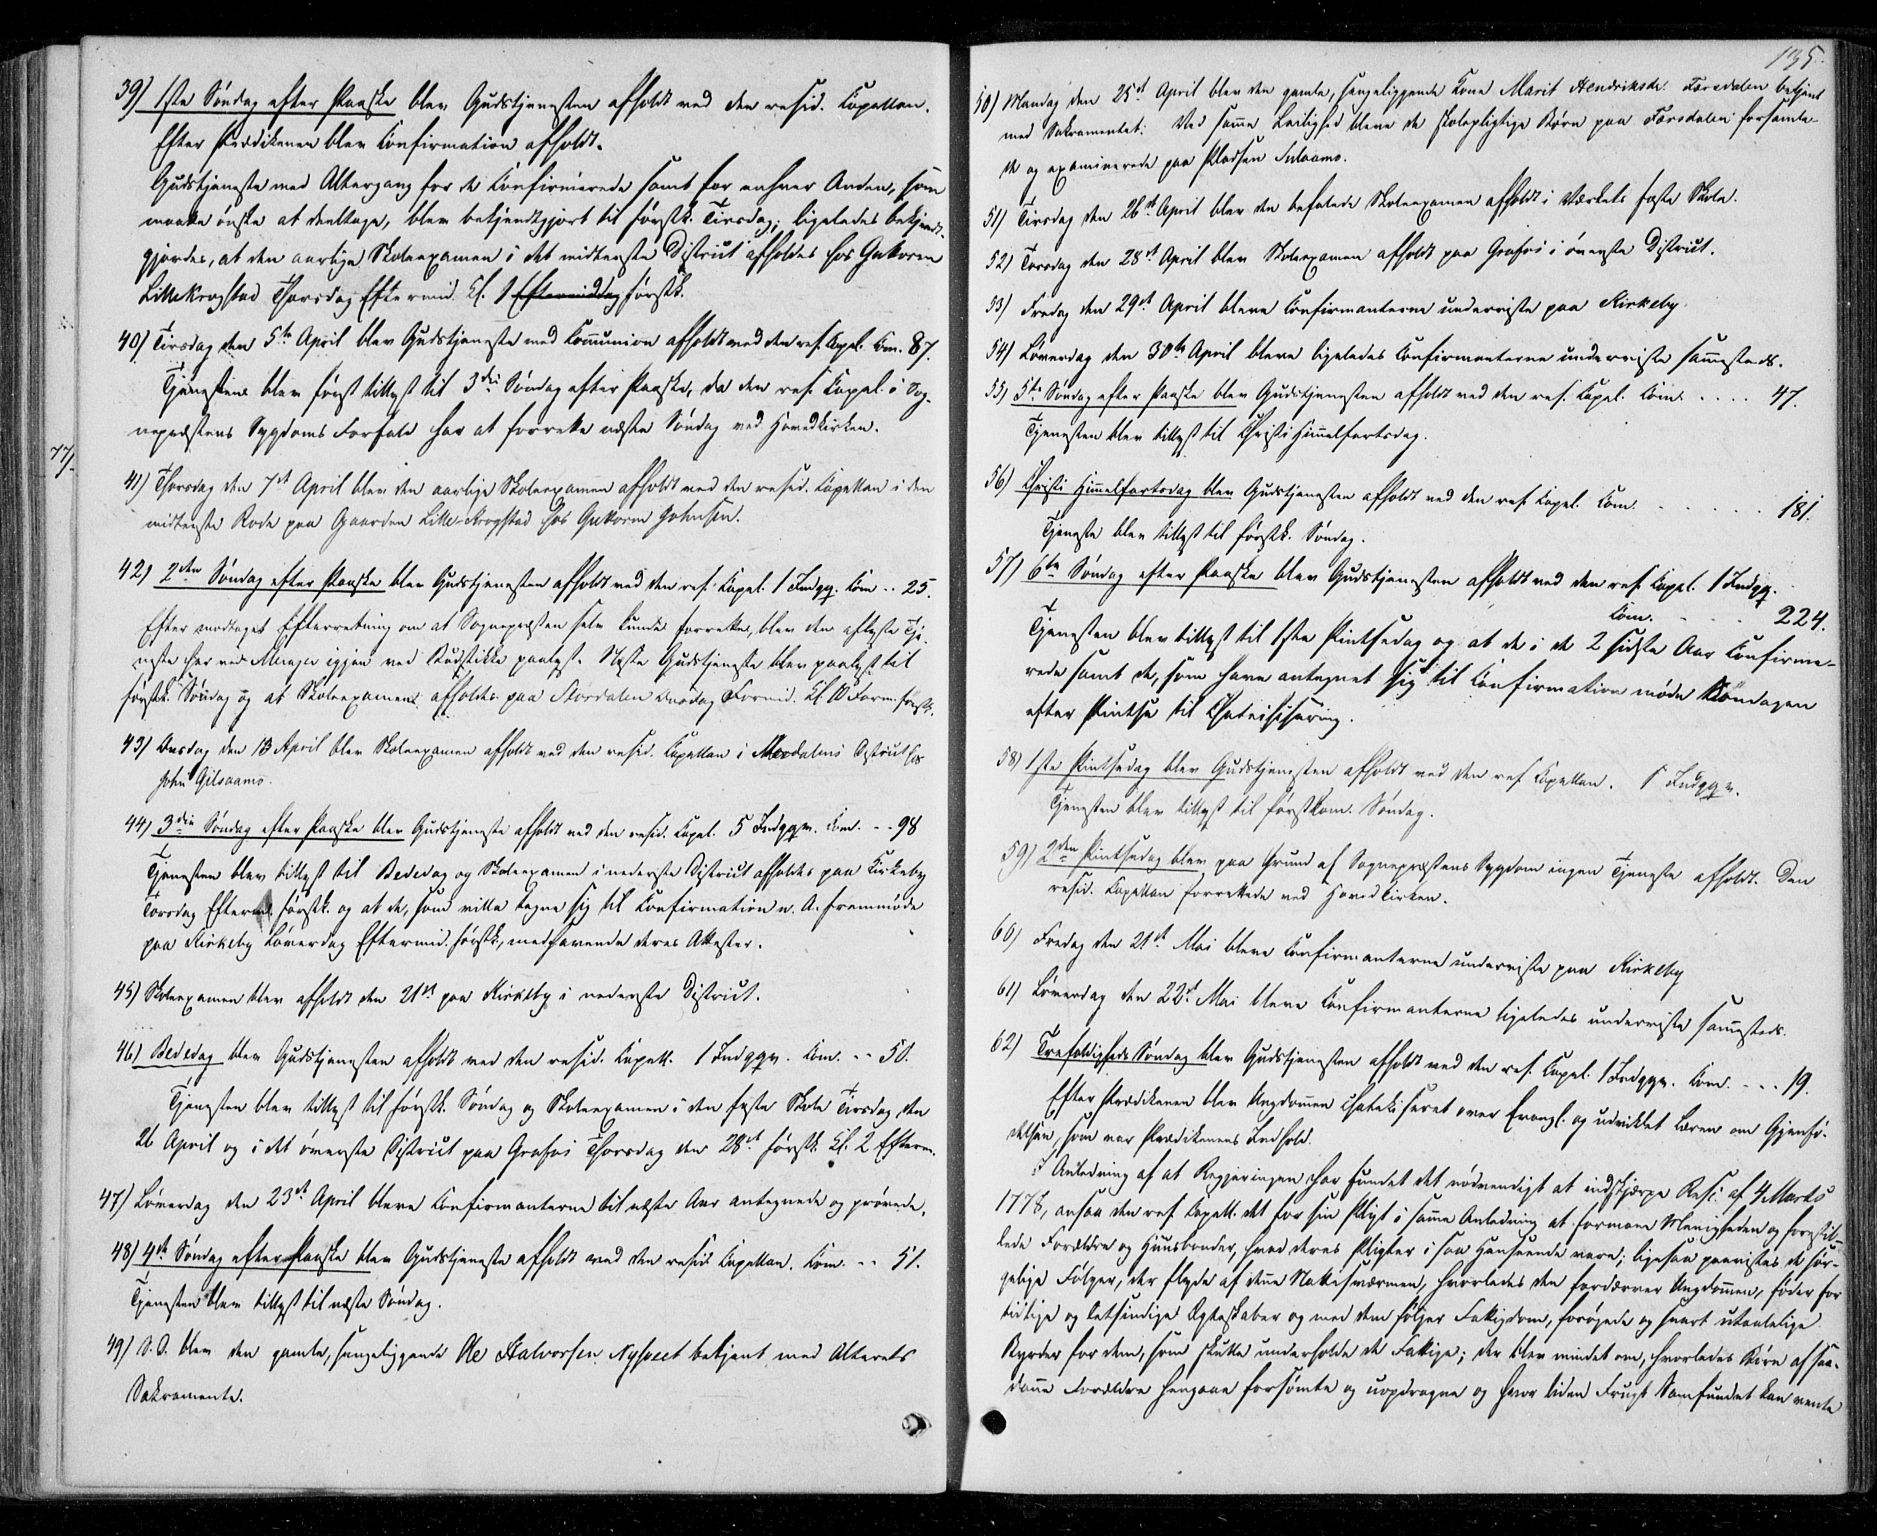 39) 1ste Søndag efter Paaske blev Gudstjenesten afholdt ved den resid. Capellan.
Efter Prædikenen blev Confirmation afholdt.
Gudstjeneste med Altergang for de Confirmerede samt for enhver Anden, som
maatte ønske at deeltage, blev bekjendtgjort til førstk. Tirsdag; ligeledes bekjendt-
gjordes, at den aarlige Skoleexamen i det midterste District afholdes hos Guttorm
Lillekrogstad Thorsdag Eftermid. Kl. 1 Eftermiddag førstk.
40) Tirsdag den 5te April blev Gudstjeneste med Communion afholdt ved den res. Capel. Com. 87.
Tjenesten blev først tillyst til 3die Søndag efter Paaske, da den res. Capel. i Sog-
nepræstens Sygdoms Forfald har at forrette næste Søndag ved Hovedkirken.
77/.
41) Thorsdag den 7de April blev den aarlige Skoleexamen afholdt ved den resid. Capellan i den
midterste Rode paa Gaarden Lille-Krogstad hos Guttorm Johnsen.
42) 2den Søndag efter Paaske blev Gudstjenesten afholdt ved den res. Capel. 1 Indgg. Com .. 25.
Efter modtaget Efterretning om at Sognepræsten selv kunde forrette, blev den aflyste Tje-
neste her ved Meraker igjen ved Budstikke paalyst. Næste Gudstjeneste blev paalyst til
førstk. Søndag og at Skoleexamen afholdes paa Stordalen Onsdag Formid. Kl. 10 Form. førstk.
43) Onsdag den 13 April blev Skoleexamen afholdt ved den resid. Capellan i District hos
John Gilsaamo.
44) 3die Søndag efter Paaske blev Gudstjeneste afholdt ved den resid. Capel. 5 Indggr. Com. - - 98
Tjenesten blev tillyst til Bededag og Skoleexamen i nederste District afholdes paa Kirkeby
Torsdag Efterm. førstk. og at de, som ville tegne sig til Confirmation n. A. fremmøde
paa Kirkeby Løverdag Eftermid. førstk., medhavende deres Attester.
45) Skoleexamen blev afholdt den 21st paa Kirkeby i nederste District.
46) Bededag blev Gudstjenesten afholdt ved den resid. Capell. 1 Indggr. Com. - - 50.
Tjenesten blev tillyst til førstk. Søndag og Skoleexamen i den faste Skole Tirsdag den
26 April og i det øverste District paa Grafoi Thorsdag den 28de førstk. Kl. 2 Efterm.
47) Løverdag den 23de April bleve Confirmanterne til næste Aar antegnede og prøvede.
48) 4de Søndag efter Paaske blev Gudstjeneste afholdt ved den resid. Capellan. Com. - - 51.
Tjenesten blev tillyst til næste Søndag.
49) S. D. blev den gamle, sengeliggende Ole Halvorsen Nysveet betjent med Alterets
Sakramente.
135.
50) Mandag den 25de April blev den gamle, sengeliggende Kone Marit Hendriksdr. Færsdalen betjent
med Sakramentet. Ved samme Leilighed bleve de skolepligtige Børn paa Færsdalen forsamle-
de og examinerede paa Pladsen Sulaamo.
51) Tirsdag den 26de April blev den befalede Skoleexamen afholdt i Værkets faste Skole.
52) Torsdag den 28de April blev Skoleexamen afholdt paa Grafoi i øverste District.
53) Fredag den 29de April bleve Confirmanterne underviste paa Kirkeby.
54) Løverdag den 30te April bleve ligeledes Confirmanterne underviste sammesteds.
55) 5te Søndag efter Paaske blev Gudstjenesten afholdt ved den res. Capel. Com. . . . . 47.
Tjenesten blev tillyst til Christi Himmelfartsdag.
56) Christi Himmelfartsdag blev Gudstjenesten afholdt ved den res. Capel. Com. . . . . . . 181.
Tjeneste blev tillyst til førstk. Søndag.
57) 6te Søndag efter Paaske blev Gudstjenesten afholdt ved den res. Capel. 1 Indgg.
Com. . . . 224.
Tjenesten blev tillyst til 1ste Pintsedag og at de i de 2 sidste Aar Confirme-
rede samt de, som have antegnet sig til Confirmation møde Søndagen
efter Pintse til Chateisisering.
58) 1ste Pintsedag blev Gudstjenesten afholdt ved den res. Capellan. 1 Indggr.
Tjenesten blev tillyst til førstkom. Søndag.
59) 2den Pintsedag blev paa Grund af Sognepræstens Sygdom ingen Tjeneste afholdt. Den
resid. Capellan forrettede ved Hovedkirken.
60) Fredag den 21st Mai bleve Confirmanterne underviste paa Kirkeby
61) Løverdag den 22de Mai bleve Confirmanterne ligeledes underviste sammesteds.
62) Trefoldigheds Søndag blev Gudstjenesten afholdt ved den res. Capel. 1 Indggr. Com. - - - 19.
Efter Prædikenen blev Ungdommen chatekiseret over Evangl. og udviklet Læren om Gjenfø-
delsen, som var Prædikenens Indhold.
I Anledning af at Regjeringen har fundet det nødvendigt at indskjærpe Resc. af 4 Marts
1778, ansaa den res. Capell. det for sin Pligt i samme Anledning at formane Menigheden og forestil-
lede Forældre og Huusbonder, hvad deres Pligter i saa Henseende vare; ligesaa paavistes de sør-
gelige Følger, der flyde af denne Nattesværmen, hvorledes den fordærver Ungdommen, føder for
tidlige og letsindige Egteskaber og med dem følger Fattigdom, forøgede og snart utaalelige
Byrder for dem, som skulle underholde de Fattige; der blev mindet om, hvorledes Børn af saa-
danne Forældre hengaae forsømte og uopdragne og hvor liden Frugt Samfundet kan vente